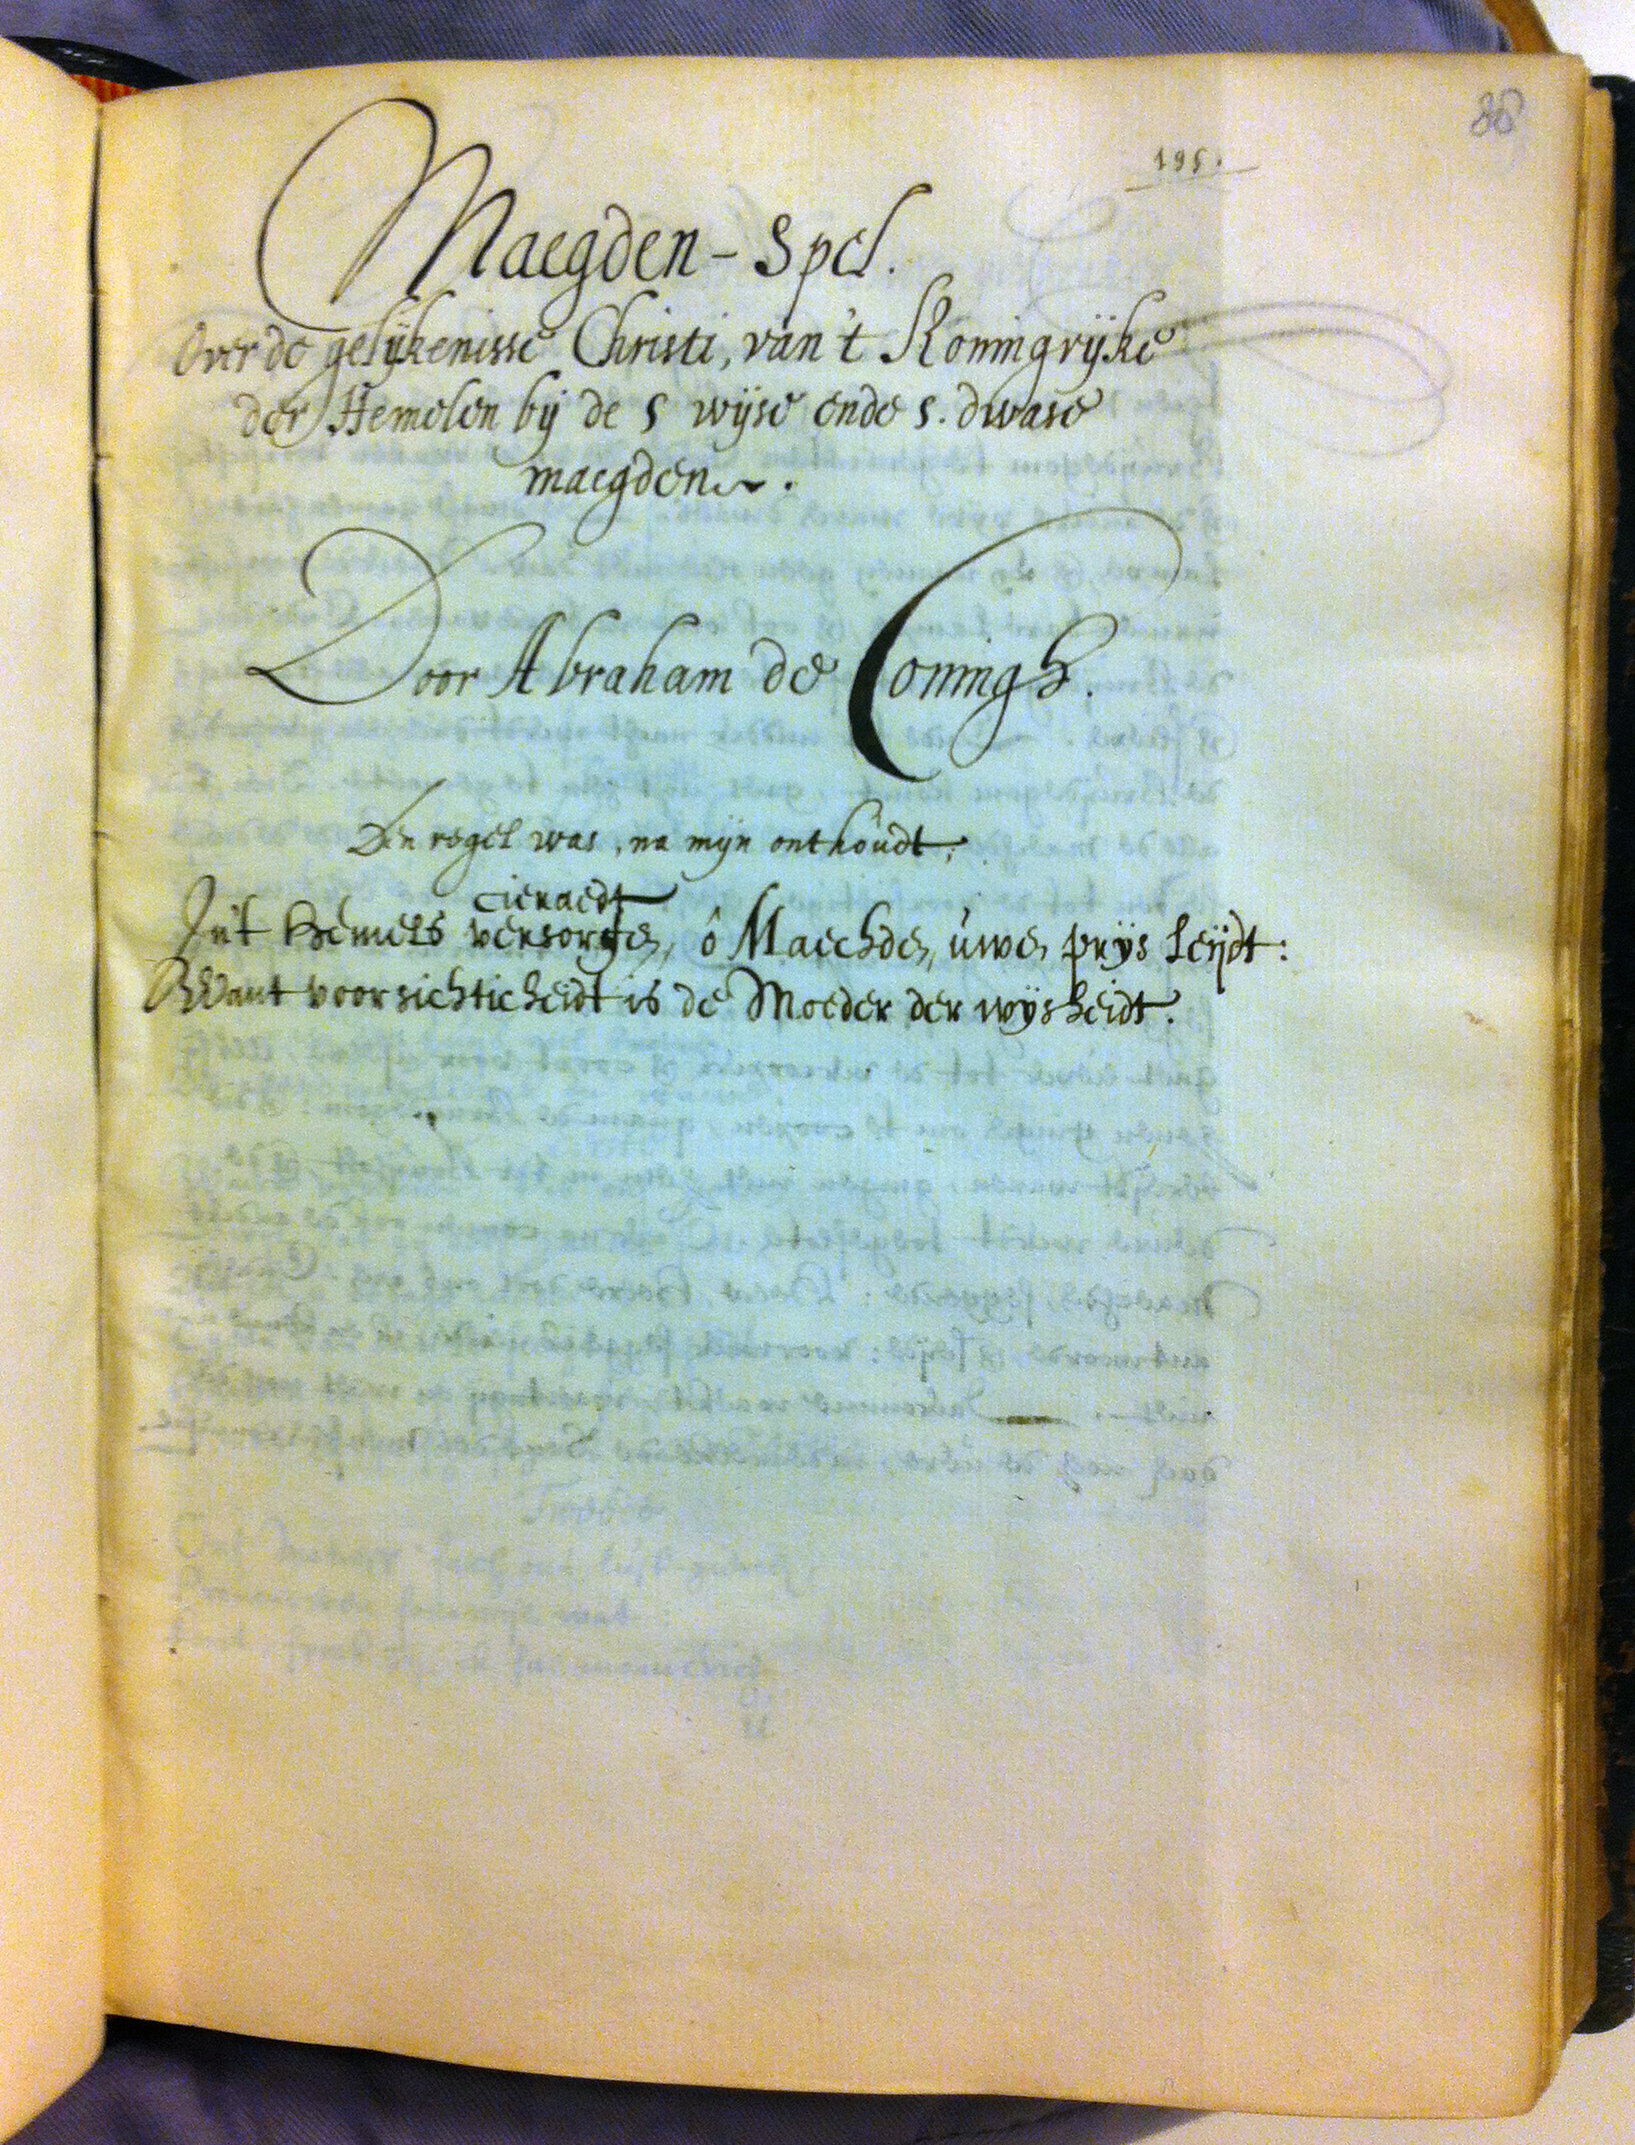 88
195.
Maegden-Spel.
Over de gelÿkenisse Christi, van 't Koningrÿke
der Hemelen bÿ de 5 wÿse ende 5. dwase
maegden.
Door Abraham de Coningh.
Den regel was, na mÿn onthoudt,
cieraedt
In't hemels versorgen, ô Maechden, uwen prÿs leÿdt:
Want voorsichticheidt is de Moeder der wÿsheidt.